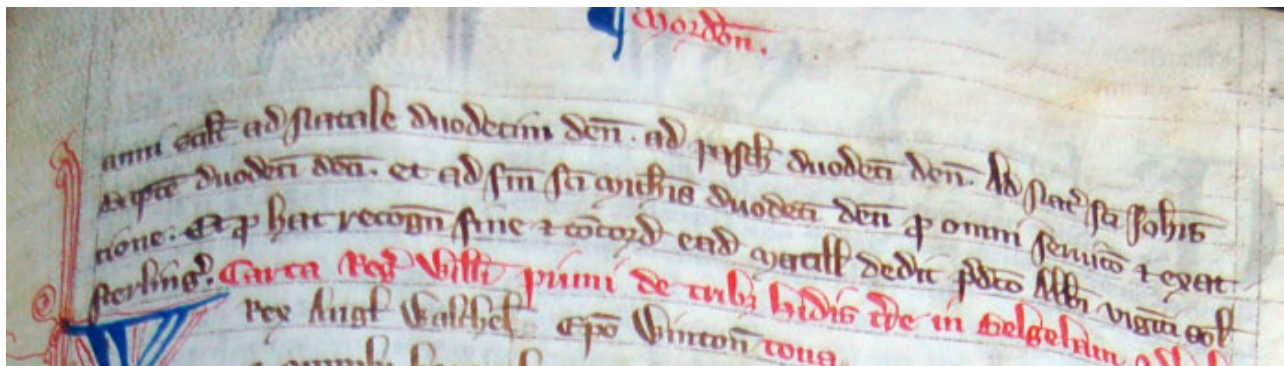 Mordoñ.
anni scił ad Natale duodecim deñ. ad pasch̄ duodeci deñ. Ad Nat' sci Johis
Bapte duodeci deñ. et ad fm̄ sci Mich̄is duodeci deñ p omni seruico & exac
tione. Et p hac recogñ fine & cōcord ead Matill dedit pdco Abbi viginti sol
sterling'. Carta Reg' Willi primi de trib; hidis t're in
Rex Angł Walchel Epō Wintoñ